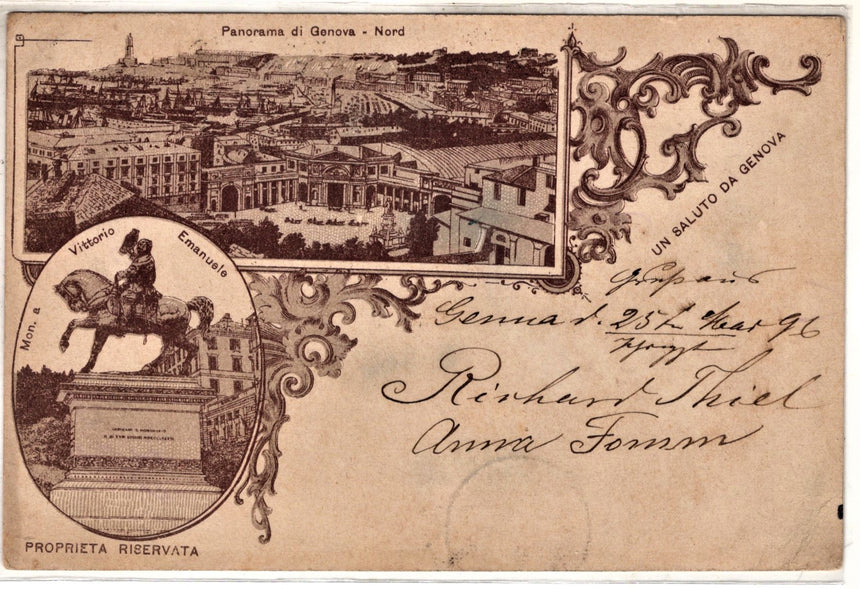 Panorama di Genova - Nord
UN SALUTO DA GENOVA
Mon. a Vittorio Emanuele
Gruß aus
Genua d. 25t 96
Richard Thiel
Anna Fomm
PROPRIETA RISERVATA